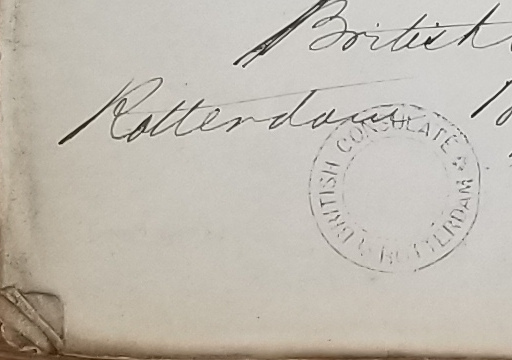 British
Rotterdam
BRITISH CONSULATE
ROTTERDAM